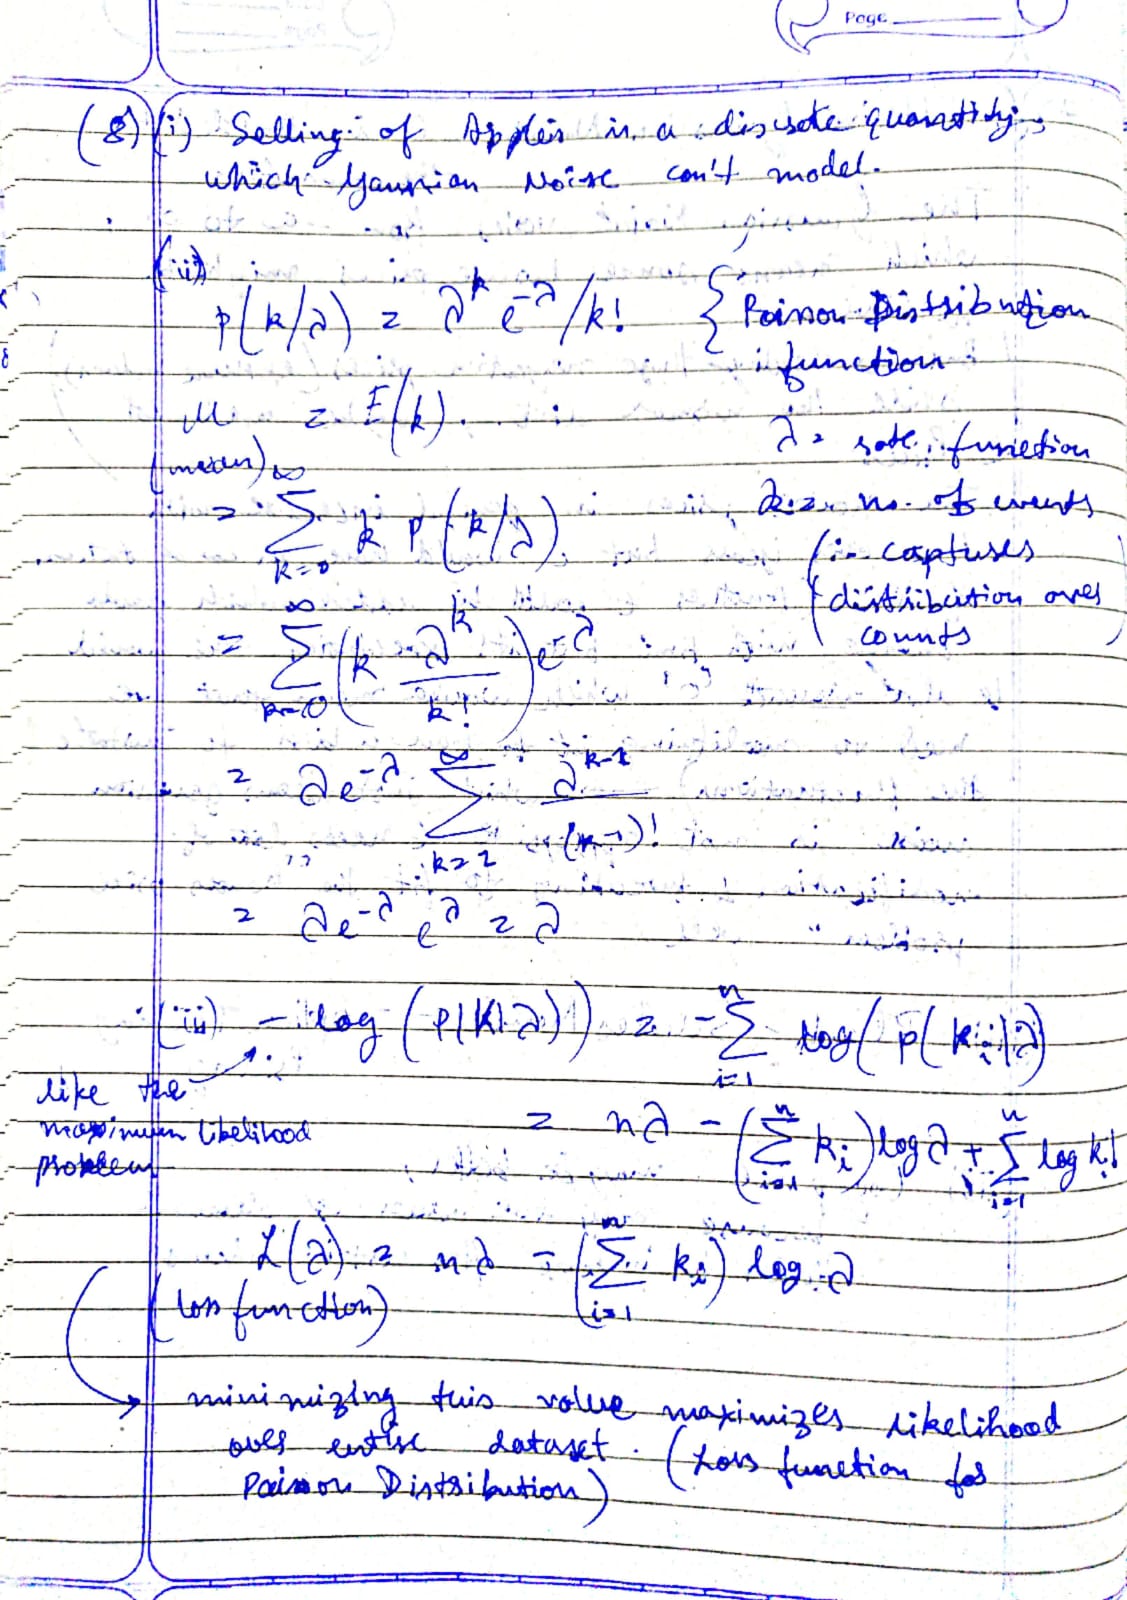 Page
(8) (i) Selling of Apples is a discrete quantity,
which Gaussian Noise can't model.
(ii)
p(k/λ) = λ^k e^-λ /k! { Poisson Distribution
function
μ = E(k). λ = rate function
(mean)
= ∑_{k=0}^{∞} k p(k/λ) k = no. of events
(i.e. captures
distribution over
counts)
= ∑_{k=0}^{∞} (k λ^k / k!) e^-λ
= λe^-λ ∑_{k=1}^{∞} λ^{k-1} / (k-1)!
= λe^-λ e^λ = λ
(iii) - log (p(k|λ)) = -∑_{i=1}^{n} log( p(k_i|λ)
like the
maximum likelihood
problem
= nλ - (∑_{i=1}^{n} k_i) log λ + ∑_{i=1}^{n} log k_i!
L(λ) = nλ - (∑_{i=1}^{n} k_i) log λ
(loss function)
minimizing this value maximizes likelihood
over entire dataset. (Loss function for
Poisson Distribution)